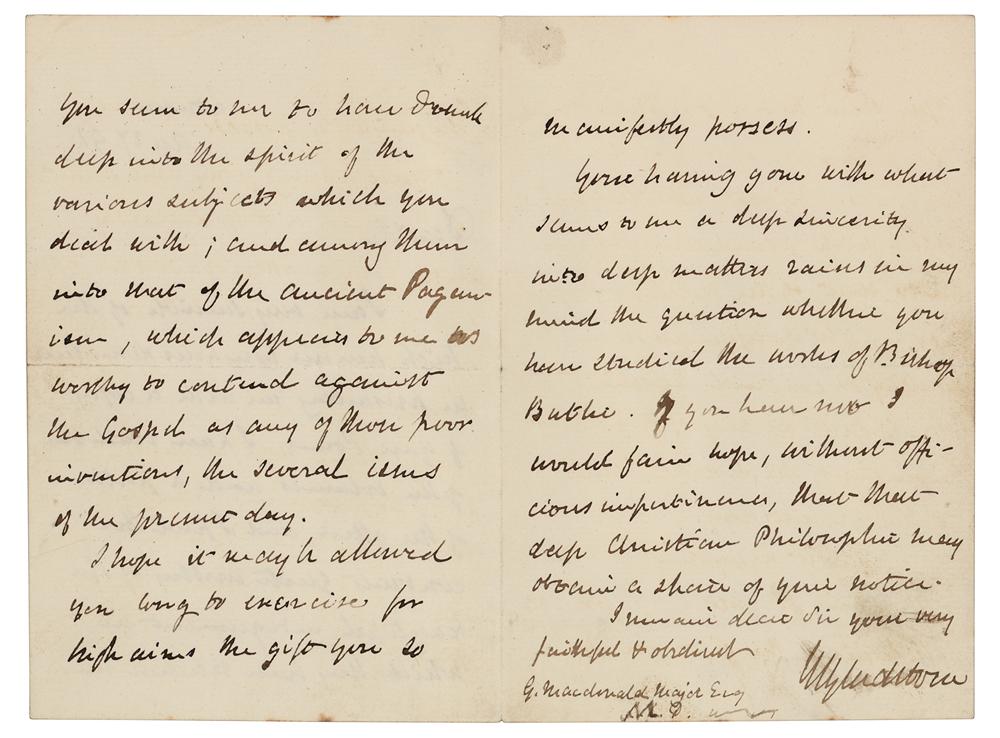 you seem to me to have drunk
deep into the spirit of the
various subjects which you
deal with; and among them
into that of the ancient Pagan-
ism, which appears to me as
worthy to contend against
the Gospel as any of those poor
inventions, the several isms
of the present day.
I hope it may be allowed
you long to exercise for
high aims the gift you so
manifestly possess.
Your having gone with what
seems to me a deep sincerity
into deep matters raises in my
mind the question whether you
have studied the works of Bishop
Butler. If you have not I
would fain hope, without offi-
cious impertinence, that that
deep Christian Philosopher may
obtain a share of your notice.
I remain dear Sir your very
faithful & obedient
WEGladstone
G. Macdonald Major Esq
M.D.